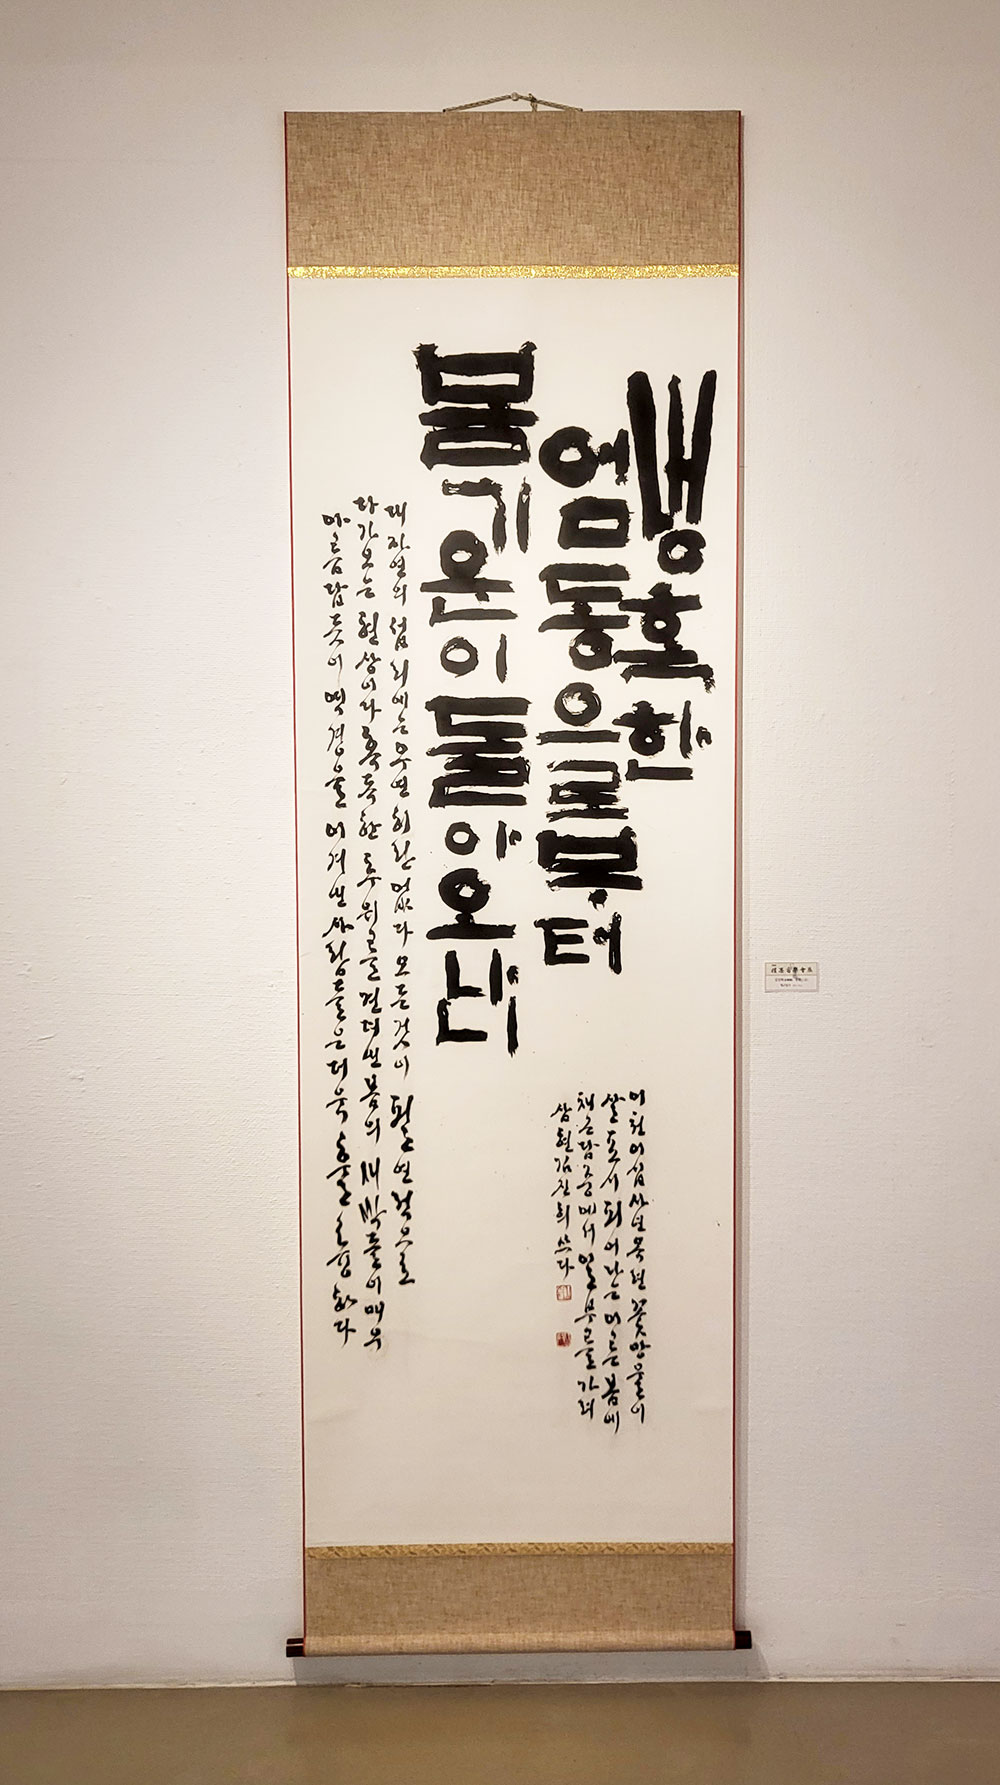 냉혹한
엄동으로붓터
봄기운이돌아오니
대자연의 섭리에는 우연히란 없다 모든것이 필연적으로
다가오는 현상이다 혹독한 추위를 견뎌낸 봄의 새싹들이 매우
아름답듯이 역경을 이겨낸 사람들은 더욱 훌륭하다
이천이십사년 목련꽃망울이
살포시 피어나는 이른봄에
채근담 중에서 일부를 가려
삼현 김진희 쓰다